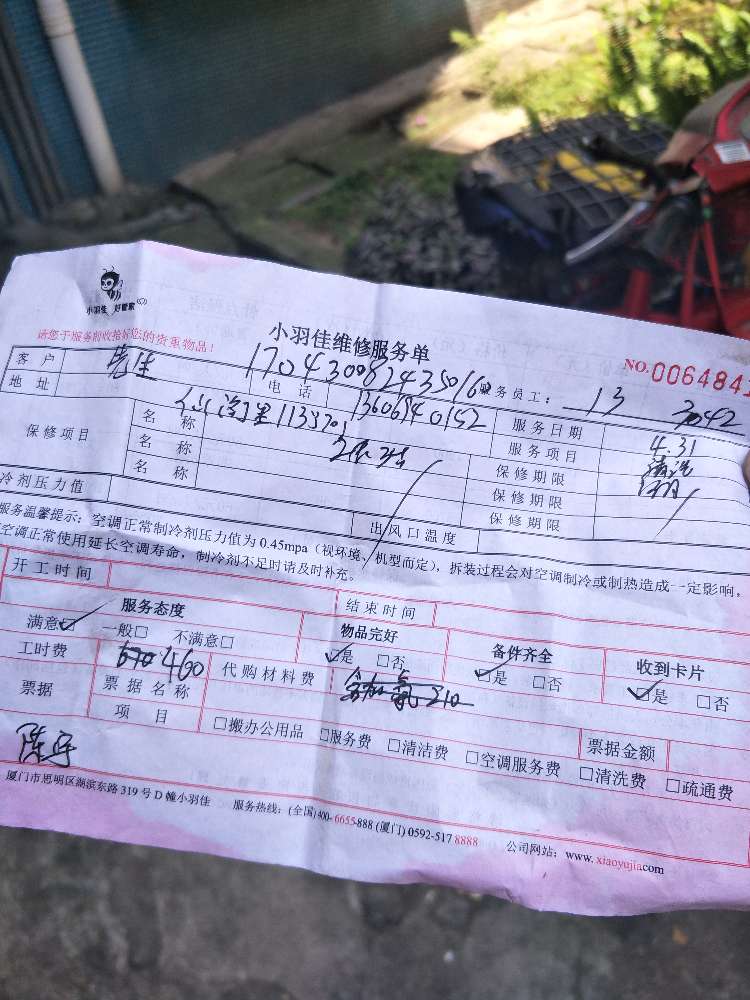 小羽佳 好管家
小羽佳维修服务单
请您于服务前收拾好您的贵重物品！
NO.006484
客户 先生 电话 13606940152 服务员工： 13 3042
17043008243501600
地址 113 服务日期 4.31
保修项目 名称 服务项目 清洗
名称 保修期限
名称 保修期限
保修期限
冷剂压力值 出风口温度
服务温馨提示：空调正常制冷剂压力值为 0.45mpa（视环境、机型而定），拆装过程会对空调制冷或制热造成一定影响，
空调正常使用延长空调寿命，制冷剂不足时请及时补充。
开工时间 结束时间
服务态度 物品完好 备件齐全 收到卡片
满意☑ 一般□ 不满意□ ☑是 □否 ☑是 □否 ☑是 □否
工时费 460 代购材料费 210
票据 票据名称
项目 □搬办公用品 □服务费 □清洁费 □空调服务费 □清洗费 □疏通费 票据金额
厦门市思明区湖滨东路 319 号 D 幢小羽佳 服务热线：(全国)400-6655-888 (厦门) 0592-517 8888 公司网站：www. xiaoyujia.com